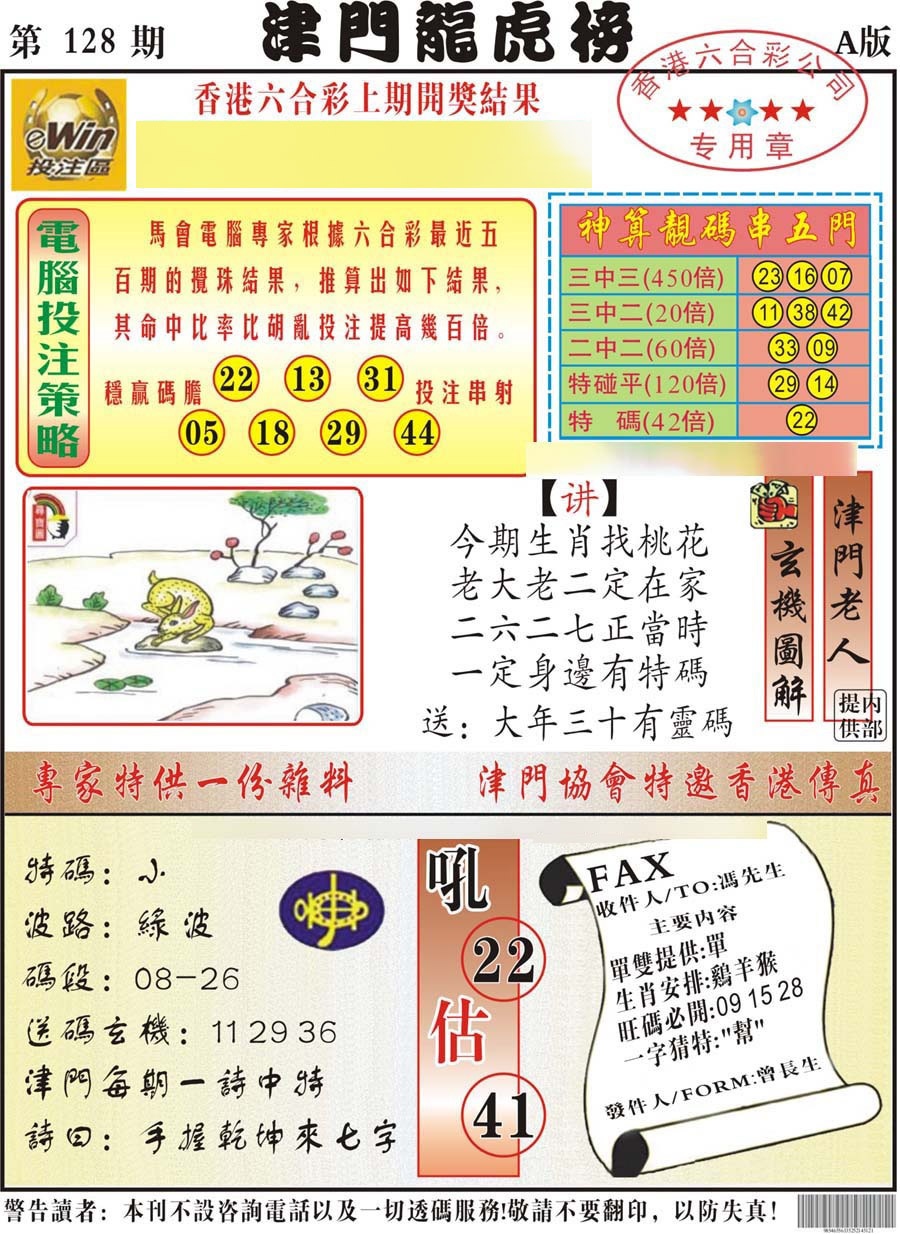 第 128 期
津門龍虎榜
A版
eWin
投注區
香港六合彩上期開獎結果
香港六合彩公司
专用章
電腦投注策略
馬會電腦專家根據六合彩最近五
百期的攪珠結果，推算出如下結果，
其命中比率比胡亂投注提高幾百倍。
穩贏碼膽 22 13 31 投注串射
05 18 29 44
神算靚碼串五門
三中三(450倍) 23 16 07
三中二(20倍) 11 38 42
二中二(60倍) 33 09
特碰平(120倍) 29 14
特 碼(42倍) 22
尋寶圖
【讲】
今期生肖找桃花
老大老二定在家
二六二七正當時
一定身邊有特碼
送：大年三十有靈碼
玄機圖解
津門老人
內部提供
專家特供一份雜料
津門協會特邀香港傳真
特碼：小
波路：綠波
碼段：08-26
送碼玄機：11 29 36
津門每期一詩中特
詩曰：手握乾坤來七字
吼
22
估
41
FAX
收件人/TO:馮先生
主要内容
單雙提供:單
生肖安排:鷄羊猴
旺碼必開:09 15 28
一字猜特:"幫"
發件人/FORM:曾長生
警告讀者：本刊不設咨詢電話以及一切透碼服務!敬請不要翻印，以防失真！